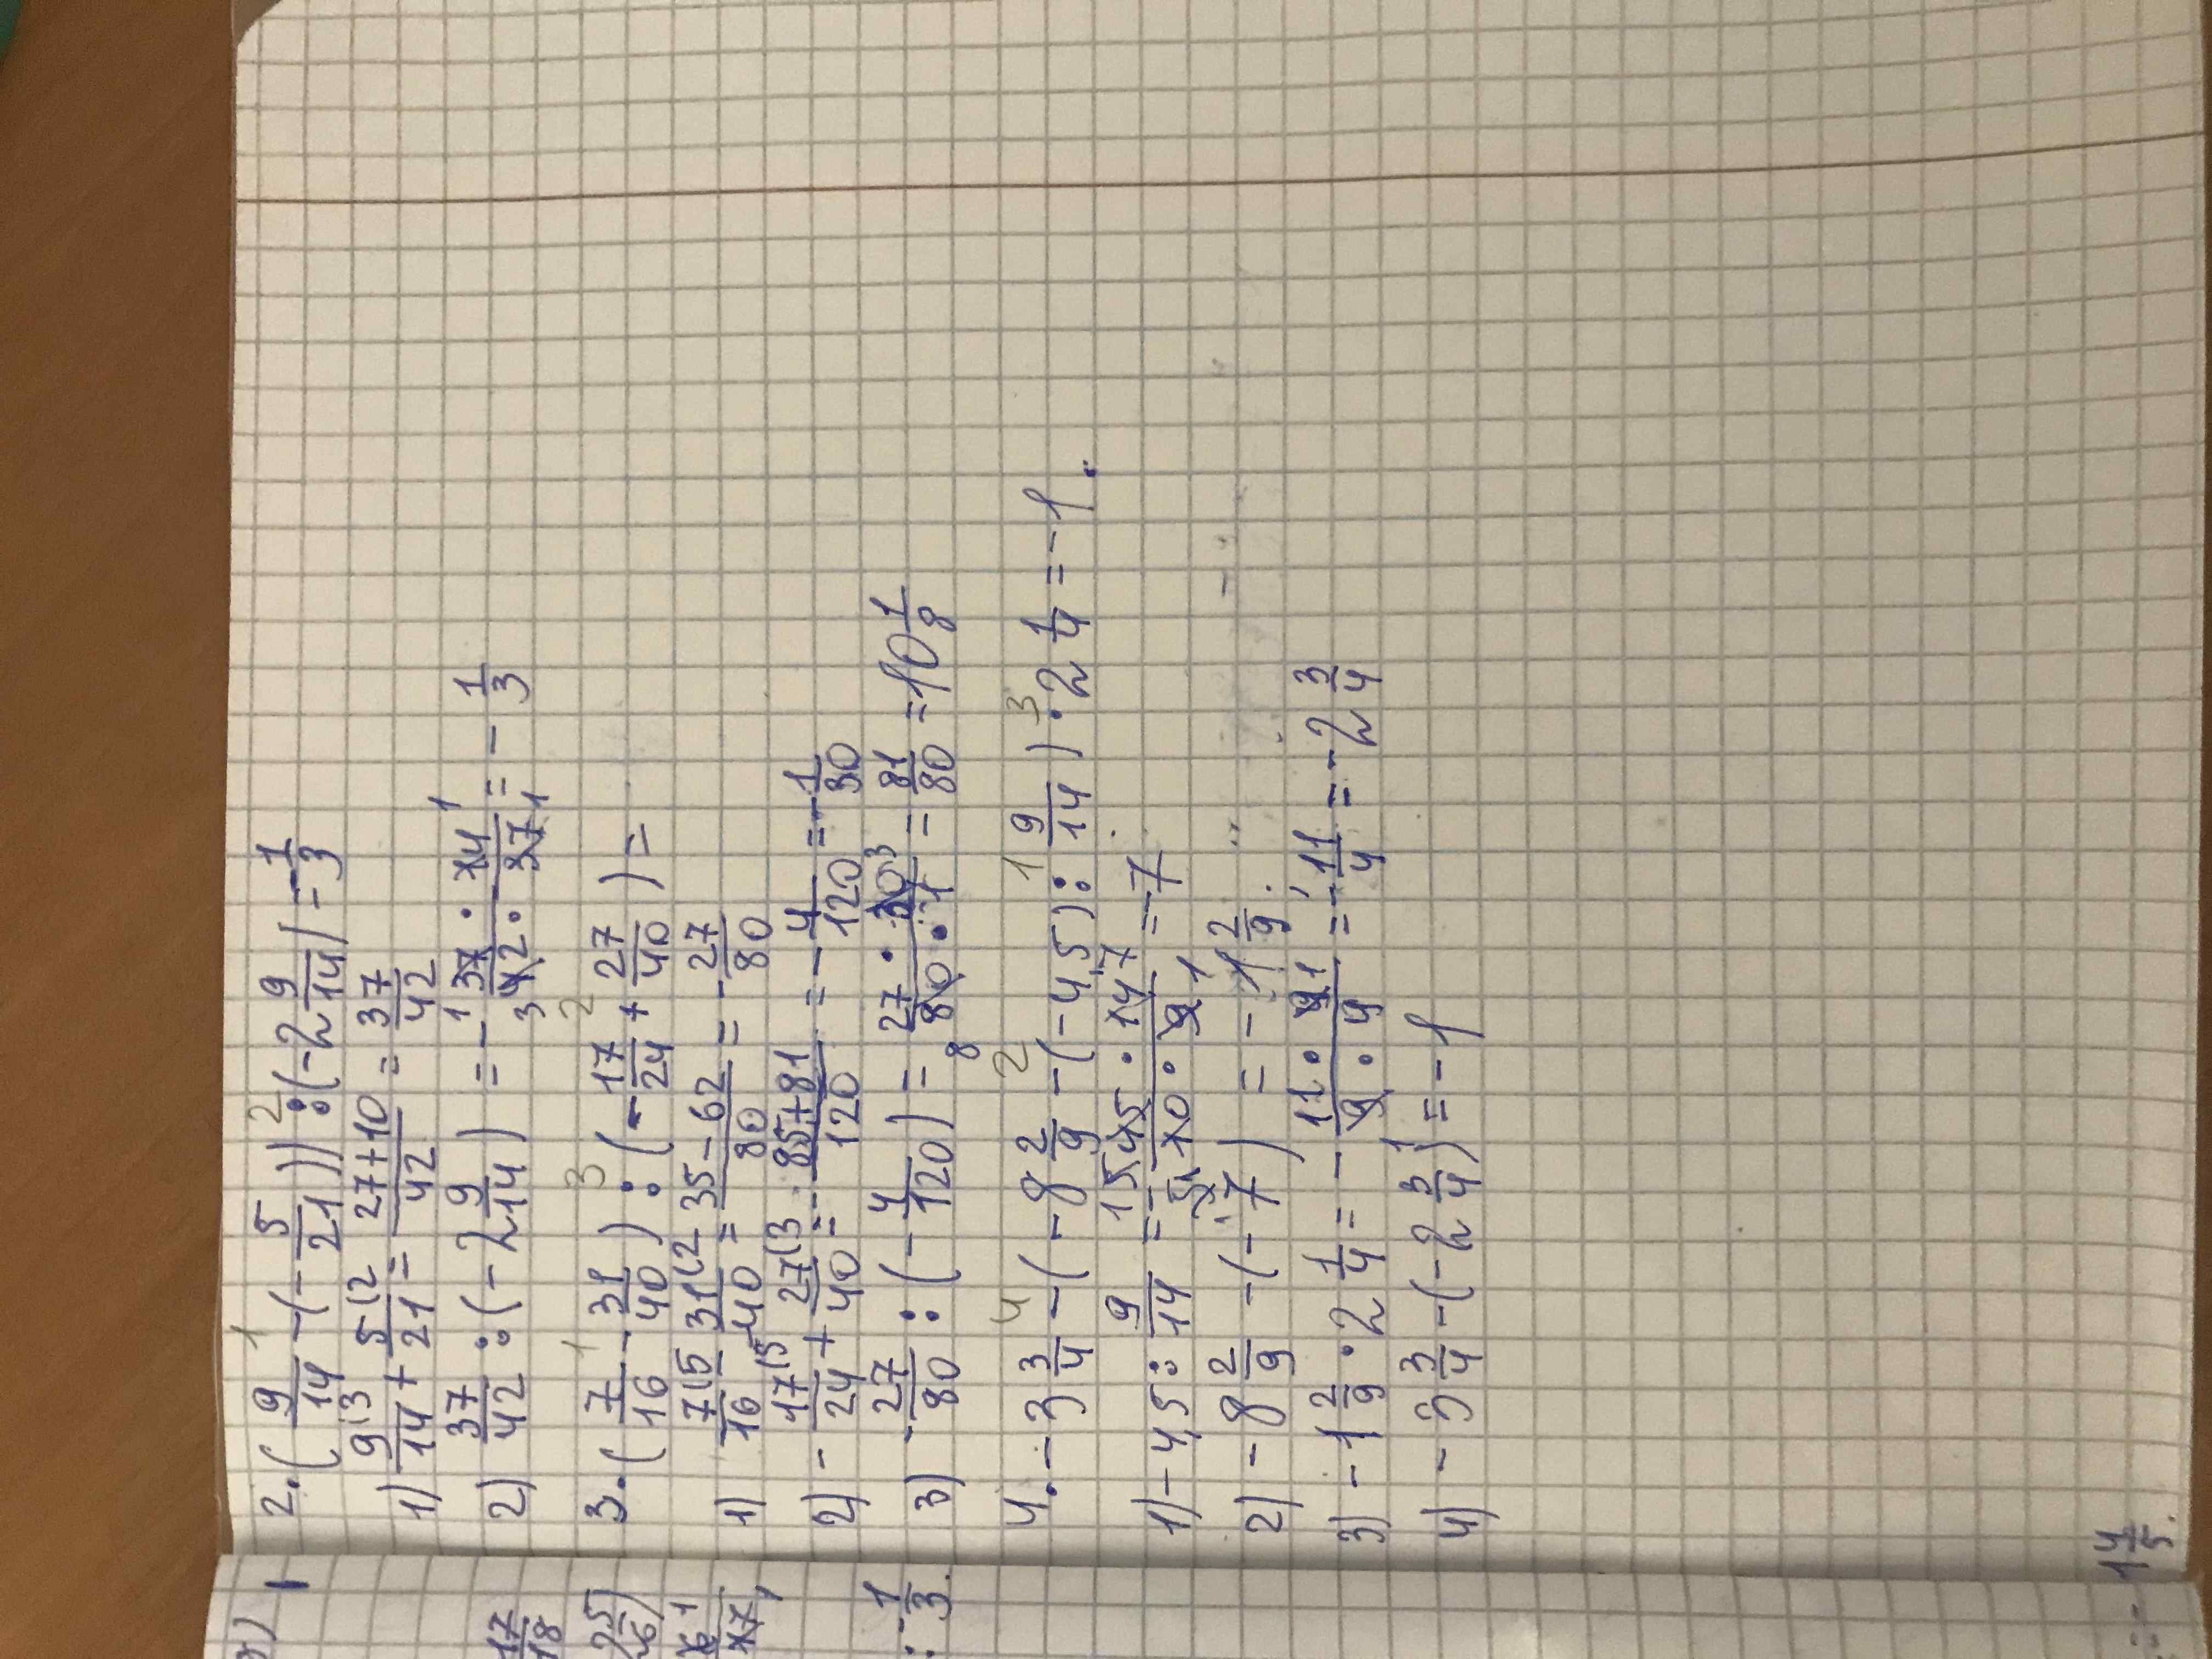 2. (9/14 - (-5/21)) : (-2 9/14) = -1/3
1) 9(3/14 + 5(2/21 = 27+10/42 = 37/42
2) 37/42 : (-2 9/14) = - 37 · 14/42 · 37 = - 1/3
3. (7/16 - 31/40) : (-17/24 + 27/40) =
1) 7(5/16 - 31(2/40 = 35-62/80 = - 27/80
2) - 17(5/24 + 27(3/40 = - 85+81/120 = - 4/120 = - 1/30
3) - 27/80 : (- 4/120) = 27 · 30/80 · 1 = 81/80 = 10 1/8
4. - 3 3/4 - (- 8 2/9 - (-4,5) : 9/14) · 2 1/4 = -1.
1) - 4,5 : 9/14 = - 45 · 14/10 · 9 = -7
2) - 8 2/9 - (-7) = - 1 2/9.
3) - 1 2/9 · 2 1/4 = - 11 · 9/9 · 4 = - 11/4 = - 2 3/4
4) - 3 3/4 - (-2 3/4) = -1
17/18
25/6)
- 1/3.
= - 1 4/5.